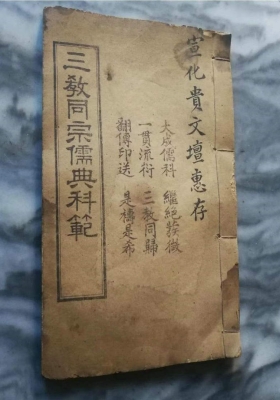 宣化貴文壇惠存
大啟儒科 繼絕發微
一貫流衍 三教同歸
翻傳印送 是禱是希
三教同宗儒典科範